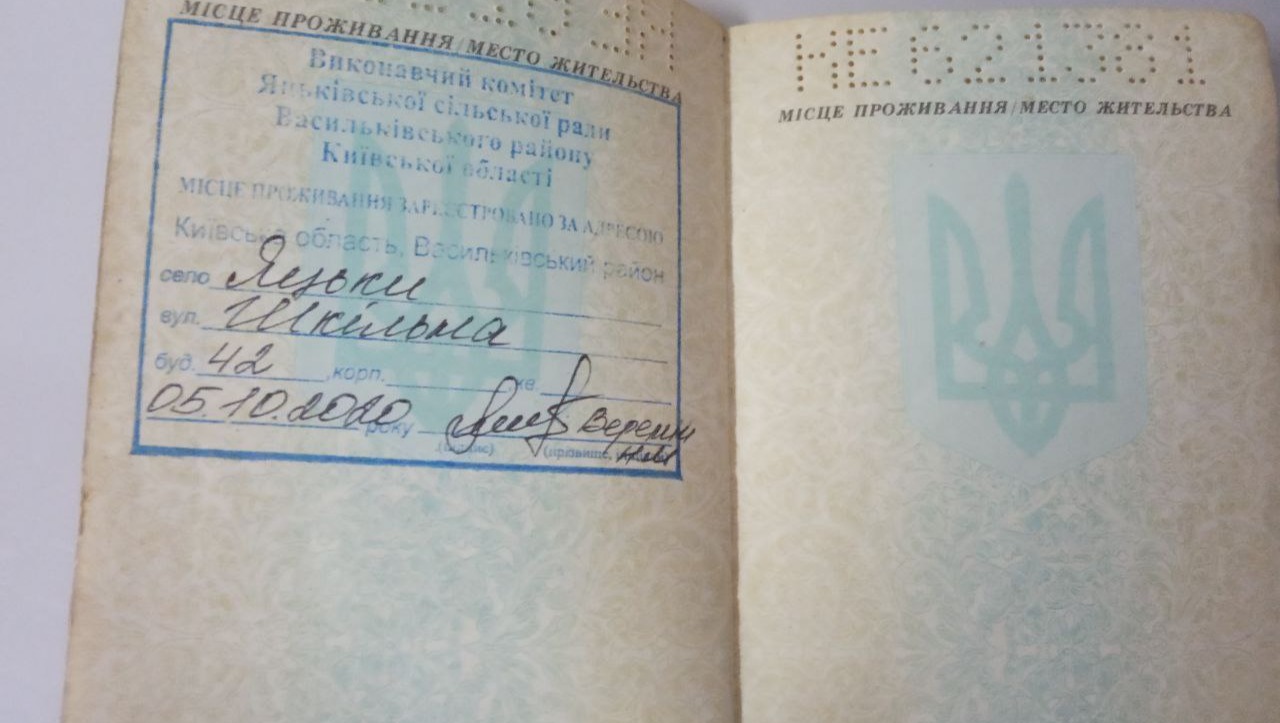 МІСЦЕ ПРОЖИВАННЯ/МЕСТО ЖИТЕЛЬСТВА
Виконавчий комітет
Яцьківської сільської ради
Васильківського району
Київської області
МІСЦЕ ПРОЖИВАННЯ ЗАРЕЄСТРОВАНО ЗА АДРЕСОЮ
Київська область, Васильківський район
село Яцьки
вул. Шкільна
буд. 42 , корп. , кв.
05.10.2020 року
(підпис) (прізвище,
МЕ621381
МІСЦЕ ПРОЖИВАННЯ/МЕСТО ЖИТЕЛЬСТВА